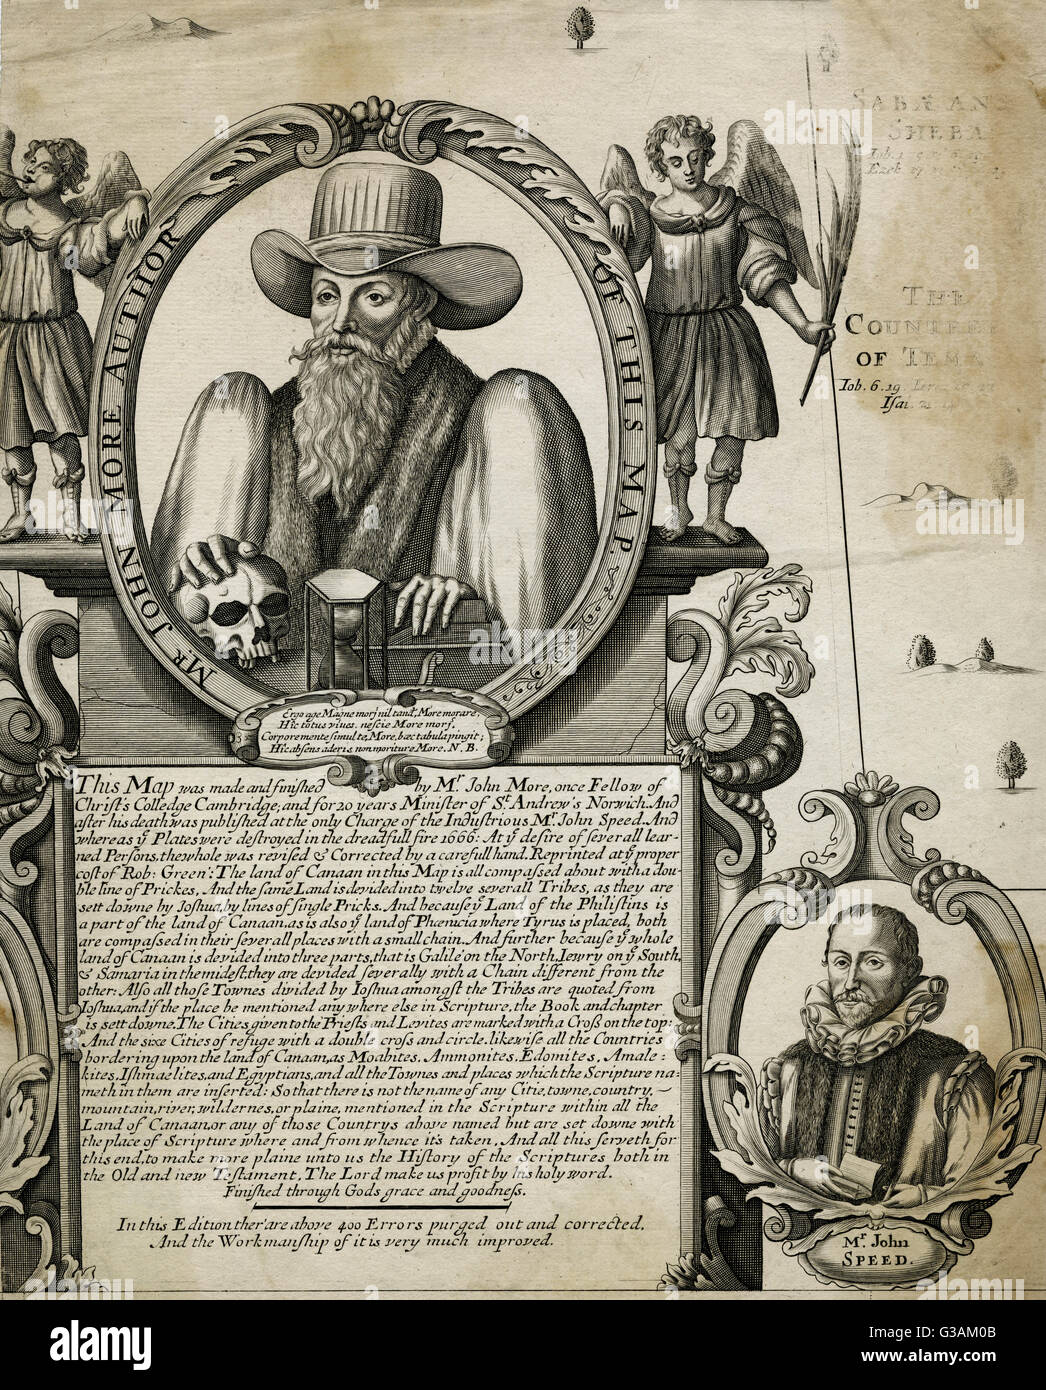 SABÆAN
SHEBA
Iob. 1
Ezek 27
THE
COUNTREY
OF TEMA
Iob. 6. 19.
Isai. 21
Mr JOHN MORE AUTHOR OF THIS MAP.
Ergo age Magne mori nil tand, More morare;
Hic totus viues. nescie More mori.
Corpore mente simul te, More, hæc tabula pingit;
Hic absens aderis non moriture More. N. B.
This Map was made and finished by Mr. John More, once Fellow of
Christ's Colledge Cambridge; and for 20 years Minister of St. Andrew's Norwich. And
after his death was published at the only Charge of the Industrious Mr. John Speed. And
whereas ye Plates were destroyed in the dreadfull fire 1666: At ye desire of severall lear-
ned Persons, the whole was revised & Corrected by a carefull hand. Reprinted at ye proper
cost of Rob: Green: The land of Canaan in this Map is all compassed about with a dou-
ble line of Prickes, And the same Land is devided into twelve severall Tribes, as they are
sett downe by Joshua, by lines of single Pricks. And because ye Land of the Philistins is
a part of the land of Canaan, as is also ye land of Phœnicia where Tyrus is placed, both
are compassed in their severall places with a small chain. And further because ye whole
land of Canaan is devided into three parts, that is Galile on the North, Jewry on ye South,
& Samaria in the midest, they are devided severally with a Chain different from the
other: Also all those Townes divided by Ioshua amongst the Tribes are quoted from
Ioshua, and if the place be mentioned any where else in Scripture, the Book and chapter
is sett downe. The Cities given to the Priests and Levites are marked with a Cross on the top:
And the sixe Cities of refuge with a double cross and circle. likewise all the Countries
bordering upon the land of Canaan, as Moabites, Ammonites, Edomites, Amale-
kites, Ishmaelites, and Egyptians, and all the Townes and places which the Scripture na-
meth in them are inserted: So that there is not the name of any Citie, towne, country,
mountain, river, wildernes, or plaine, mentioned in the Scripture within all the
Land of Canaan, or any of those Countrys above named but are set downe with
the place of Scripture where and from whence it's taken, And all this serveth for
this end, to make more plaine unto us the History of the Scriptures both in
the Old and new Testament, The Lord make us profit by his holy word.
Finished through Gods grace and goodness.
In this Edition ther are above 400 Errors purged out and corrected,
And the Workmanship of it is very much improved.
Mr. John
SPEED.
alamy
alamy stock photo
G3AM0B
www.alamy.com